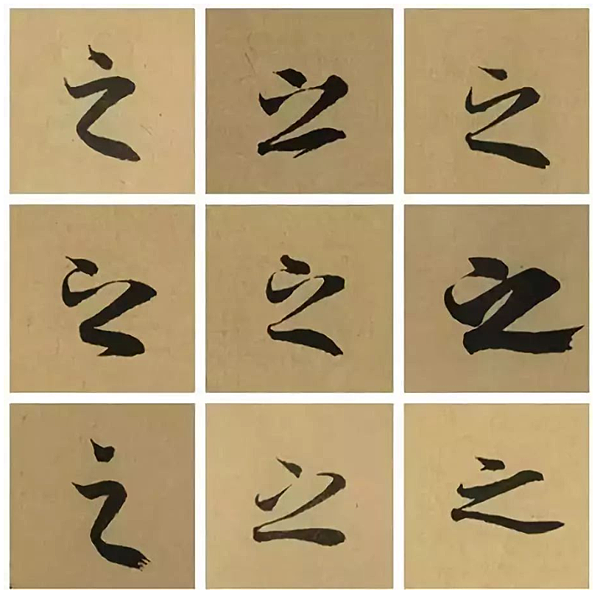 之 之 之
之 之 之
之 之 之